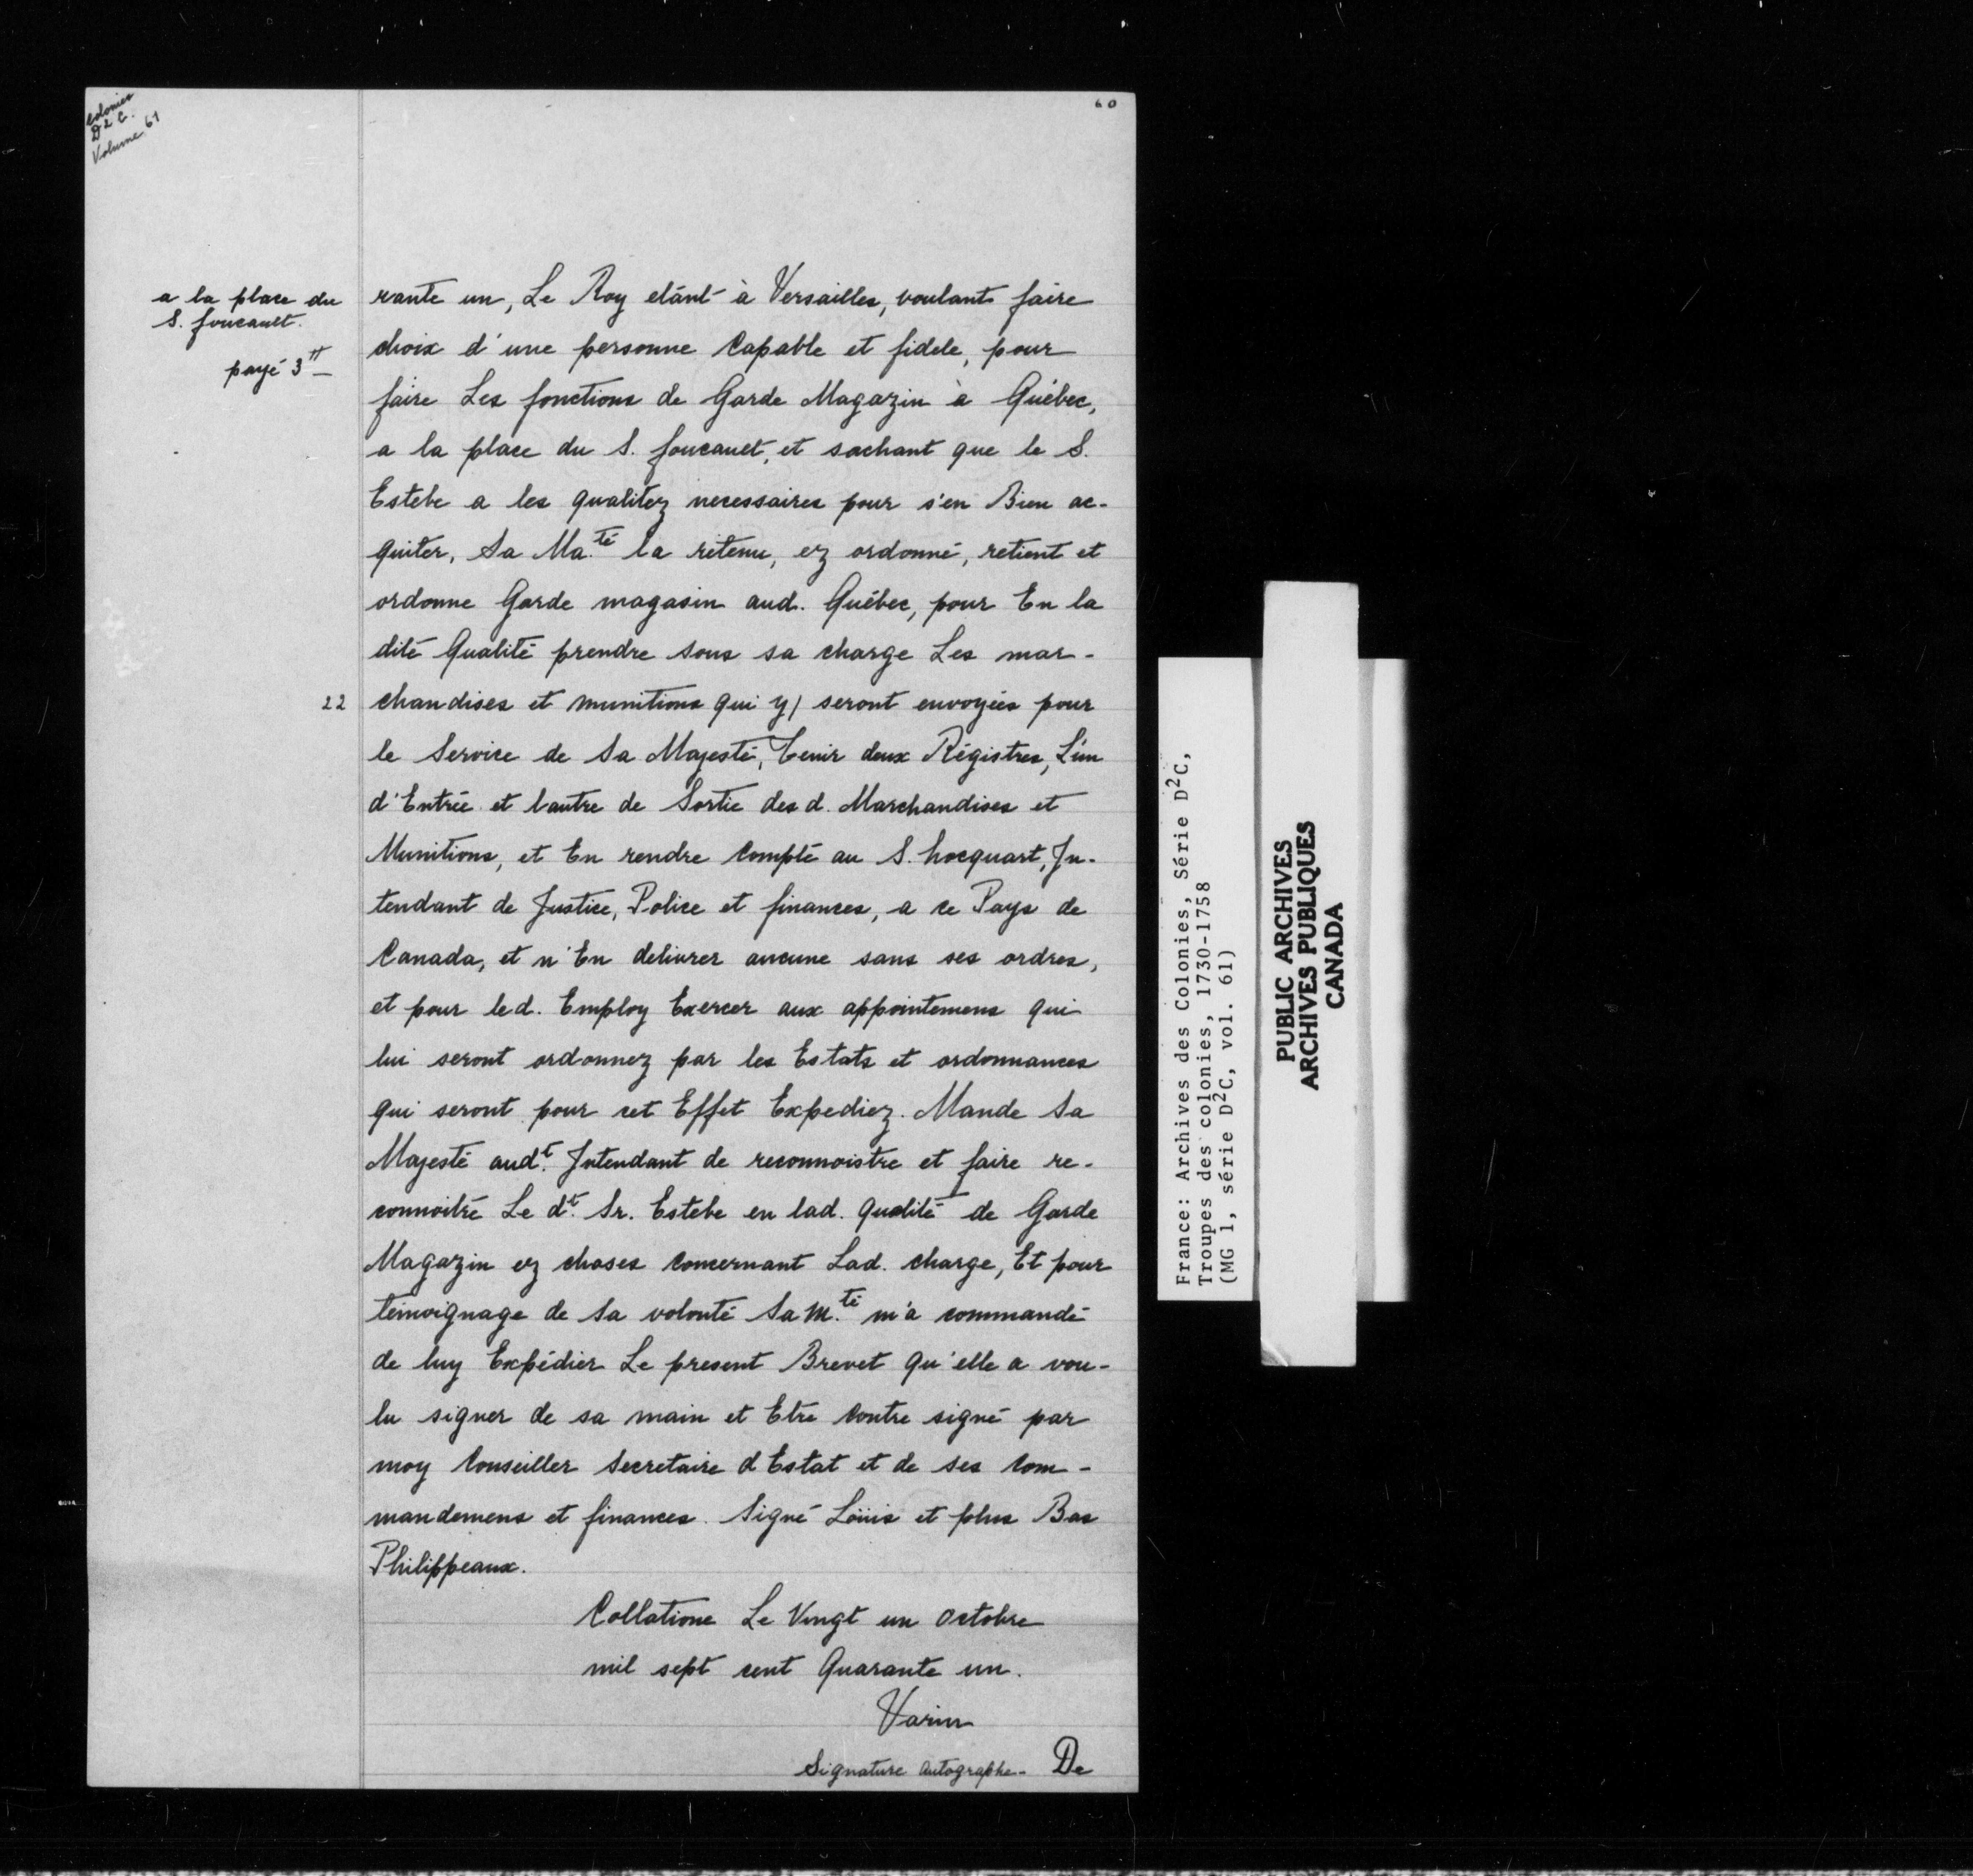 Colonies
D2C.
Volume 61
60
a la place du
S. foucault.
payé 3tt
rante un, Le Roy etánt à Versailles, voulant faire
choix d'une personne Capable et fidele, pour
faire Les fonctions de Garde Magazin à Québec,
a la place du S. foucault, et sachant que le S.
Estebe a les qualitez necessaires pour s'en Bien ac-
quiter, Sa Ma.té la retenu, ez ordonné, retient et
ordonne Garde magasin aud. Québec, pour En la
dité Qualité prendre sous sa charge Les mar-
22
chandises et munitions qui y/ seront envoyées pour
le Service de Sa Majesté, Tenir deux Régistres, L'un
d'Entrée et l'autre de Sortie des d. Marchandises et
Munitions, et En rendre Compté au S. hocquart, In-
tendant de Justice, Police et finances, a ce Pays de
Canada, et n'En delivrer aucune sans ses ordres,
et pour led. Employ Exercer aux appointemens qui
lui seront ordonnez par les Estats et ordonnances
qui seront pour cet Effet Expediez. Mande Sa
Majesté audt. Intendant de reconnoistre et faire re-
connoitré Le dt. Sr. Estebe en lad. qualité de Garde
Magazin ez choses Concernant Lad. charge, Et pour
témoignage de Sa volonté Sa M.té m'a commandé
de luy Expédier Le present Brevet qu'elle a vou-
lu signer de sa main et Etre Contre signé par
moy Conseiller Secretaire d Estat et de ses Com-
mandemens et finances. Signé Loüis et plus Bas
Philippeaux.
Collatione Le Vingt un Octobre
mil sept cent Quarante un.
Varin
Signature Autographe- De
France: Archives des Colonies, Série D2C,
Troupes des colonies, 1730-1758
(MG 1, série D2C, vol. 61)
PUBLIC ARCHIVES
ARCHIVES PUBLIQUES
CANADA